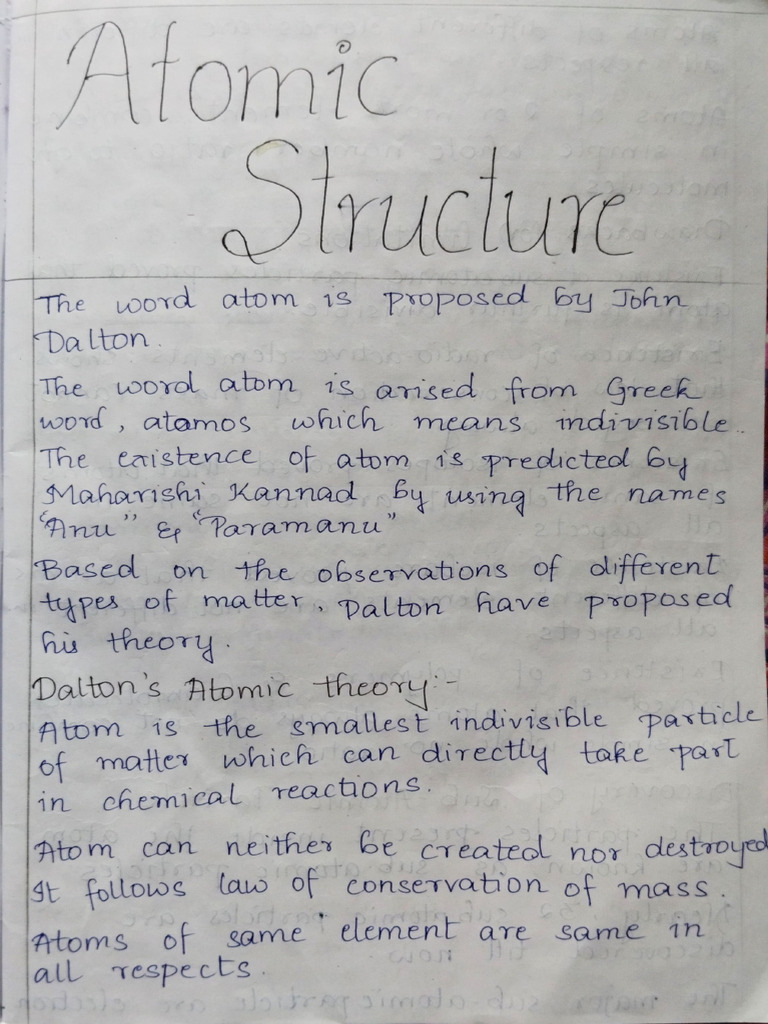 Atomic
Structure
The word atom is proposed by John
Dalton.
The word atom is arised from Greek
word, atamos which means indivisible.
The existence of atom is predicted by
Maharishi Kannad by using the names
"Anu" & "Paramanu"
Based on the observations of different
types of matter, Dalton have proposed
his theory.
Dalton's Atomic theory:-
Atom is the smallest indivisible particle
of matter which can directly take part
in chemical reactions.
Atom can neither be created nor destroyed
It follows law of conservation of mass.
Atoms of same element are same in
all respects.